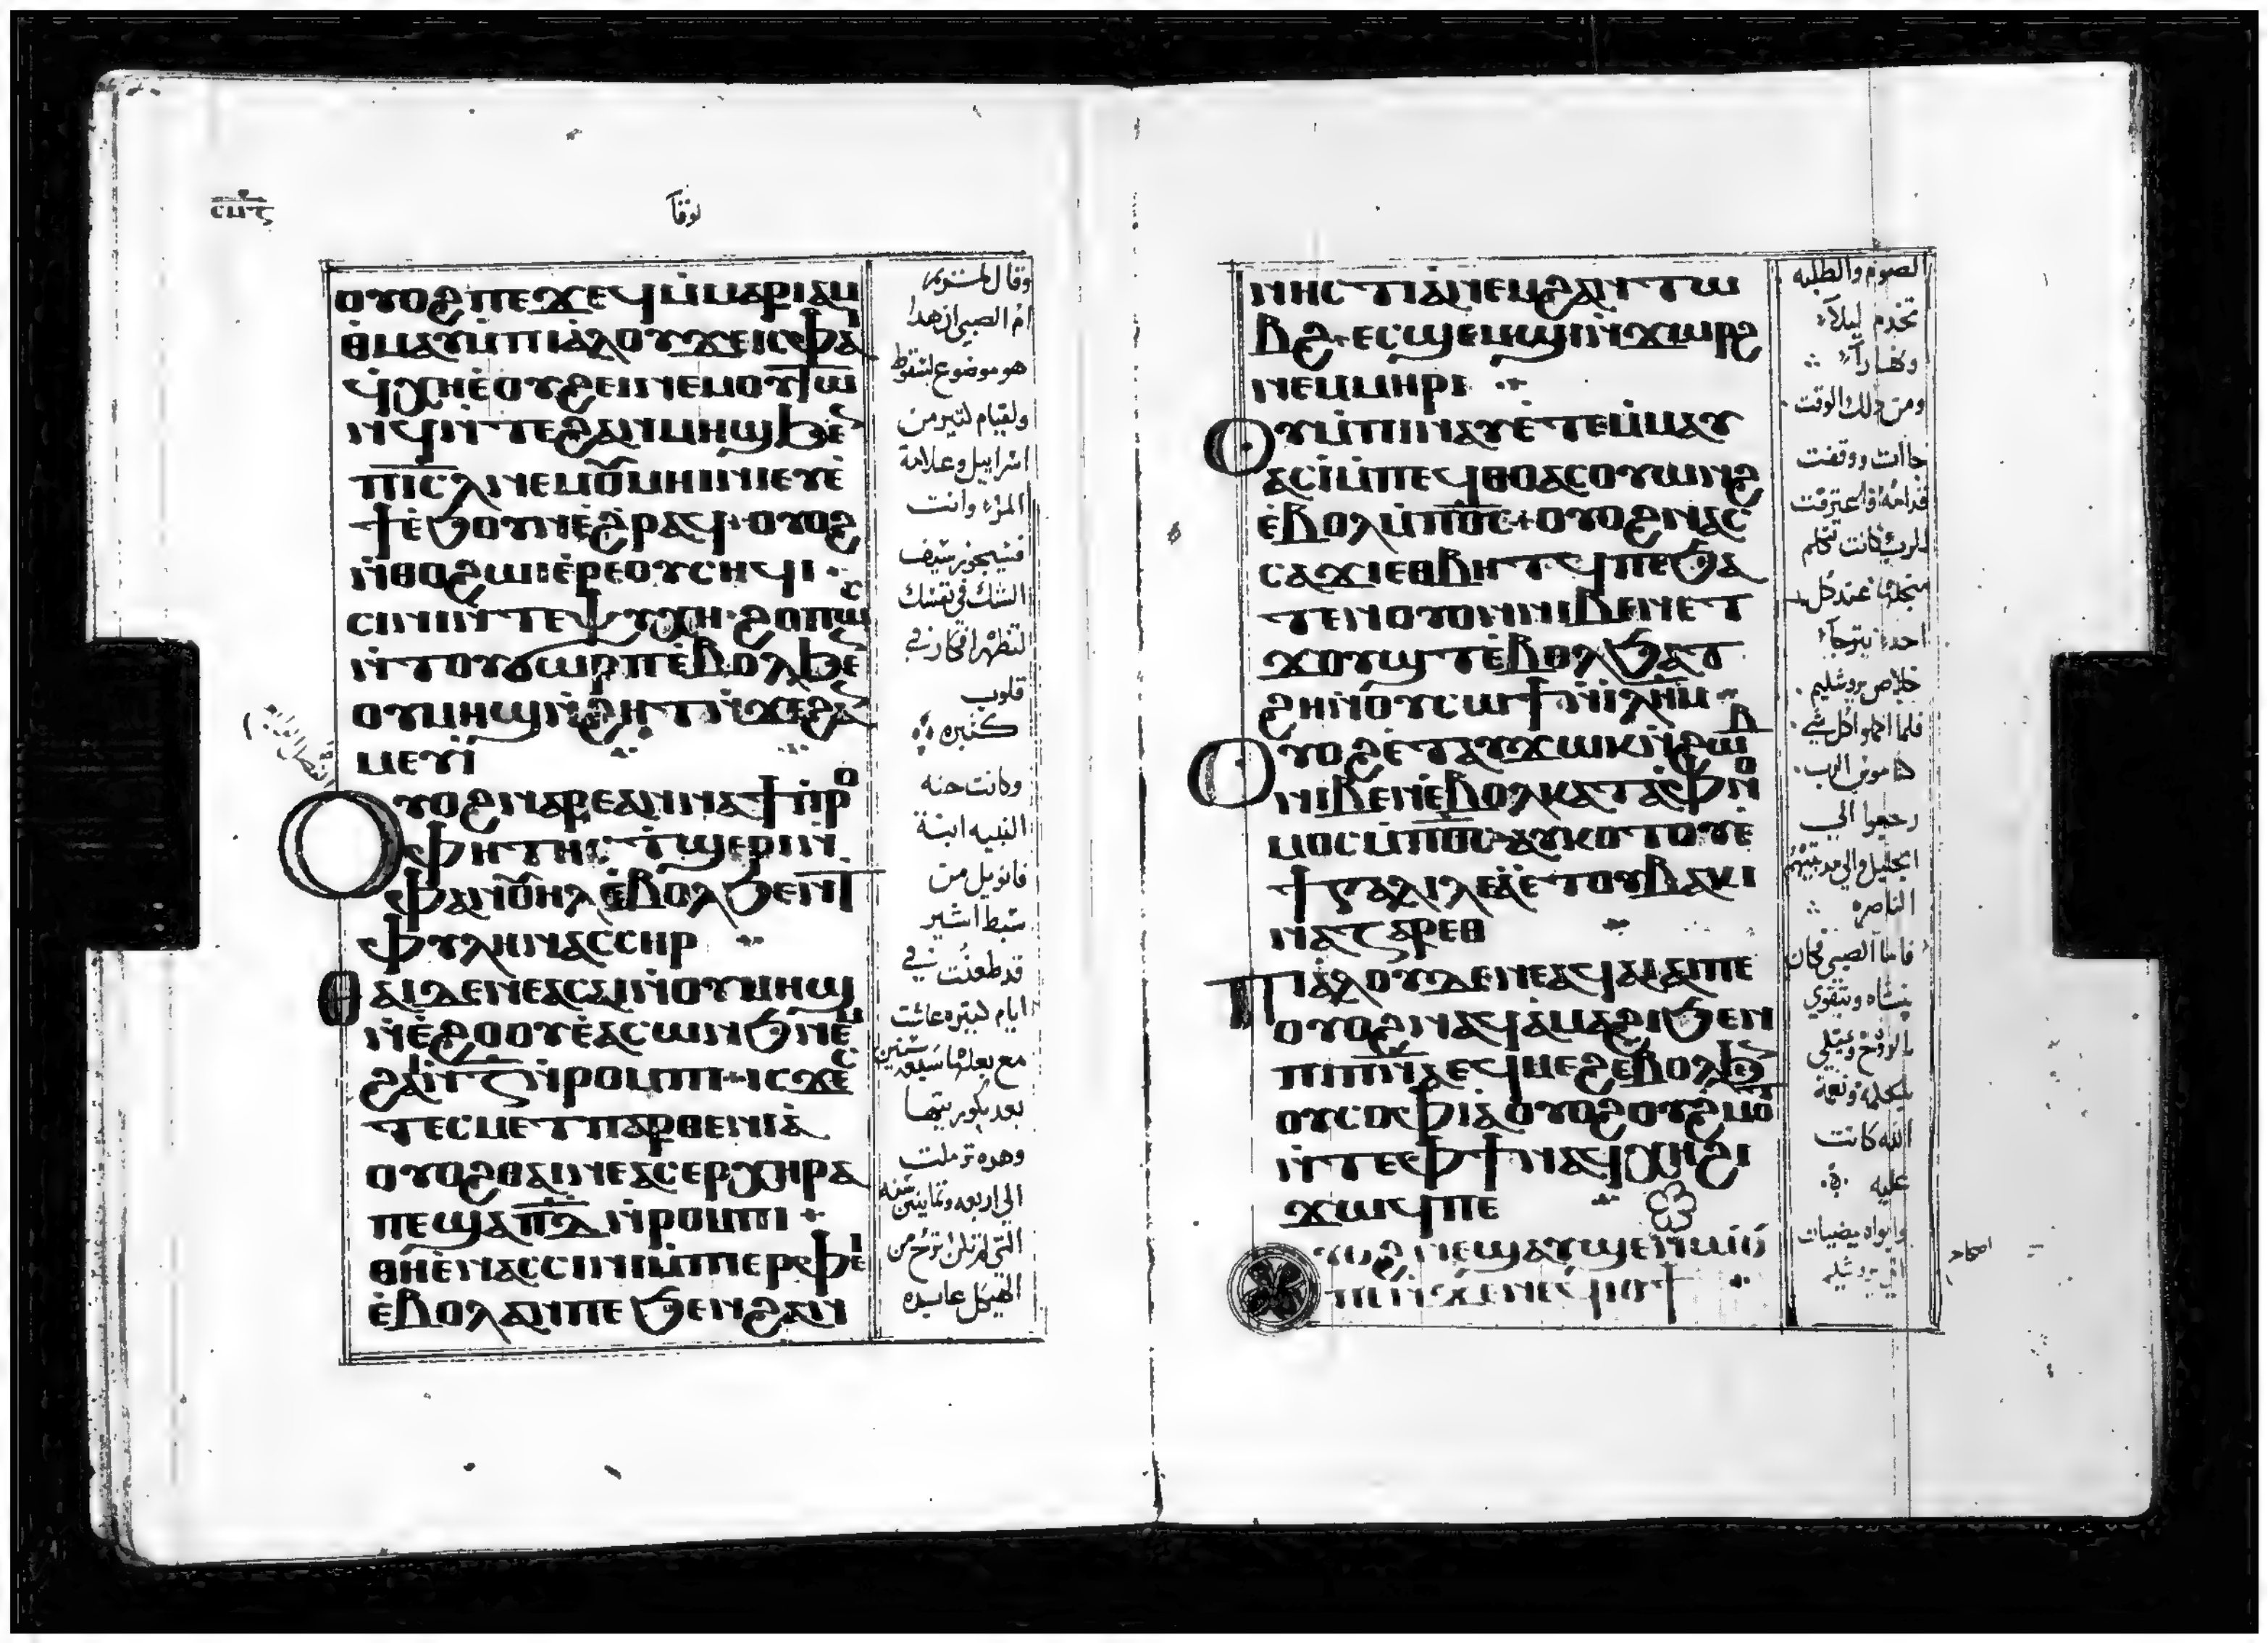 ⲥⲡⲋ
لوقا
ⲟⲩⲟϩ ⲡⲉϫⲉϥ ⲙ̇ⲙⲁⲣⲓⲁⲙ
ⲑⲙⲁⲩ ⲙ̇ⲡⲓⲁ̇ⲗⲟⲩ ϫⲉ ⲓⲥ ⲫⲁⲓ
ϥⲭⲏ ⲉ̇ⲟⲩϩⲉⲓ ⲛⲉⲙ ⲟⲩⲧⲱ
ⲛϥ ⲛ̇ⲧⲉ ϩⲁⲛⲙⲏϣ ϧⲉⲛ
ⲡⲓⲥ̅ⲗ̅ ⲛⲉⲙ ⲟⲩⲙⲏⲓⲛⲓ ⲉⲩⲉ̇
ϯ ⲉ̇ϧⲟⲩⲛ ⲉ̇ϩⲣⲁϥ · ⲟⲩⲟϩ
ⲛ̇ⲑⲟ ϩⲱⲓ ⲉ̇ⲣⲉ ⲟⲩⲥⲏϥⲓ ·
ⲥⲓⲛⲓ ⲛ̇ⲧⲉⲯⲩⲭⲏ · ϩⲟⲡⲱⲥ
ⲛ̇ⲧⲟⲩϭⲱⲣⲡ ⲉ̇ⲃⲟⲗ ϧⲉⲛ
ⲟⲩⲙⲏϣ ⲛ̇ϩⲏⲧ ⲛ̇ϫⲉ ϩⲁⲛ
ⲙⲉⲩⲓ̇
ⲟⲩⲟϩ ⲛⲁⲣⲉ ⲁⲛⲛⲁ ϯⲡ̇ⲣⲟ
ⲫⲏⲧⲏⲥ ⲧ̇ϣⲉⲣⲓ ⲛ̇
ⲫⲁⲛⲟⲩⲏⲗ ⲉ̇ⲃⲟⲗ ϧⲉⲛ ⲧ̇
ⲫⲩⲗⲏ ⲛ̇ⲁⲥⲥⲏⲣ
ⲑⲁⲓ ⲇⲉ ⲛⲉⲁⲥⲁⲓⲁⲓ ⲛ̇ⲟⲩⲙⲏϣ
ⲛ̇ⲉ̇ϩⲟⲟⲩ ⲉ̇ⲁⲥⲱⲛϧ ⲛⲉⲙ
ϩⲁⲓ ⲛ̇ⲍ̅ ⲛ̇ⲣⲟⲙⲡⲓ · ⲓⲥϫⲉⲛ
ⲧⲉⲥⲙⲉⲧⲡⲁⲣⲑⲉⲛⲓⲁ̇
ⲟⲩⲟϩ ⲑⲁⲓ ⲛⲉⲁⲥⲉⲣⲭⲏⲣⲁ
ⲡⲉ ϣⲁ ⲡ̅ⲇ̅ ⲛ̇ⲣⲟⲙⲡⲓ +
ⲑⲏ ⲉ̇ⲛⲁⲥⲥⲓⲛⲓ ⲙ̇ⲡⲓⲉⲣⲫⲉⲓ
ⲉ̇ⲃⲟⲗ ⲁⲛ ⲡⲉ ϧⲉⲛ ϩⲁⲛ
وقال لمريم
ام الصبي ان هذا
هو موضوع لسقوط
ولقيام كتير من
اسراييل وعلامة
المراء وانت
فسيجوز سيف
الشك في نفسك
لتظهر افكار في
قلوب
كثيره
وكانت حنه
النبيه ابنة
فانويل من
سبط اشير
قد طعنت في
ايام كتيره عاشت
مع بعلها سبع سنين
بعد بكوريتها
وهده ترملت
الي اربعه وثمانين سنه
التي لم تكن تبرح من
الهيكل عابده
ⲛⲏⲥⲧⲓⲁ̇ ⲛⲉⲙ ϩⲁⲛⲧⲱ
ⲃϩ · ⲉⲥϣⲉⲙϣⲓ ⲛ̇ϫⲱⲣϩ
ⲛⲉⲙ ⲙⲏⲣⲓ ·
ⲟⲩ ⲙ̇ⲡⲓⲛⲁⲩ ⲉ̇ⲧⲉⲙ̇ⲙⲁⲩ
ⲁⲥⲓ̇ ⲙ̇ⲡⲉϥⲙ̇ⲑⲟ ⲁⲥⲟⲩⲱⲛϩ
ⲉ̇ⲃⲟⲗ ⲙ̇ⲡⲟ̅ⲥ̅ + ⲟⲩⲟϩ ⲛⲁⲥ
ⲥⲁϫⲓ ⲉⲑⲃⲏⲧϥ ⲡⲉ ϧⲁ
ⲧⲉⲛ ⲟⲩⲟⲛ ⲛⲓⲃⲉⲛ ⲉⲧ
ϫⲟⲩϣⲧ ⲉ̇ⲃⲟⲗ ϧⲁⲧ
ϩⲏ ⲛ̇ⲟⲩⲥⲱϯ ⲛ̇ⲓ̅ⲗ̅ⲏ̅ⲙ̅
ⲟⲩⲟϩ ⲉ̇ⲧⲁⲩϫⲱⲕ ⲛ̇ϩⲱⲃ
ⲛⲓⲃⲉⲛ ⲉ̇ⲃⲟⲗ ⲕⲁⲧⲁ ⲫ̇ⲛⲟ
ⲙⲟⲥ ⲙ̇ⲡⲟ̅ⲥ̅ ⲁⲩⲕⲟⲧⲟⲩ ⲉ̇
ϯⲅⲁⲗⲓⲗⲉⲁ̇ ⲉ̇ⲧⲟⲩⲃⲁⲕⲓ
ⲛⲁⲍⲁⲣⲉⲑ
ⲡⲓⲁ̇ⲗⲟⲩ ⲇⲉ ⲛⲉⲁϥⲁⲓⲁⲓ ⲡⲉ
ⲟⲩⲟϩ ⲛⲁϥⲁ̇ⲙⲁϩⲓ ϧⲉⲛ
ⲡⲓⲡ̅ⲛ̅ⲁ̅ ⲉϥⲙⲉϩ ⲉ̇ⲃⲟⲗ ϧⲉⲛ
ⲟⲩⲥⲟⲫⲓⲁ̇ ⲟⲩⲟϩ ⲟⲩϩⲙⲟⲧ
ⲛ̇ⲧⲉ ⲫϯ ⲛⲁϥⲭⲏ ϩⲓ
ϫⲱϥ ⲡⲉ
ⲟⲩⲟϩ ⲛⲉϣⲁⲩϣⲉⲛⲱⲟⲩ
ⲡⲉ ⲛ̇ϫⲉ ⲛⲉϥⲓⲟϯ ·
الصوم والطلبه
تخدم ليلاً
ونهاراً
ومن ذلك الوقت
جاات ووقفت
قدامه واعترفت
للرب وكانت تتكلم
من اجله عند كل
احد يترجا
خلاص يروشليم
فلما اكملوا كل شي
كناموس الرب
رجعوا الي
الجليل والي مدينتهم
الناصره
فاما الصبي فكان
ينشاه ويتقوي
بالروح ويمتلي
بالحكمه ونعمة
الله كانت
عليه
وابواه يمضيان
الي يروشليم